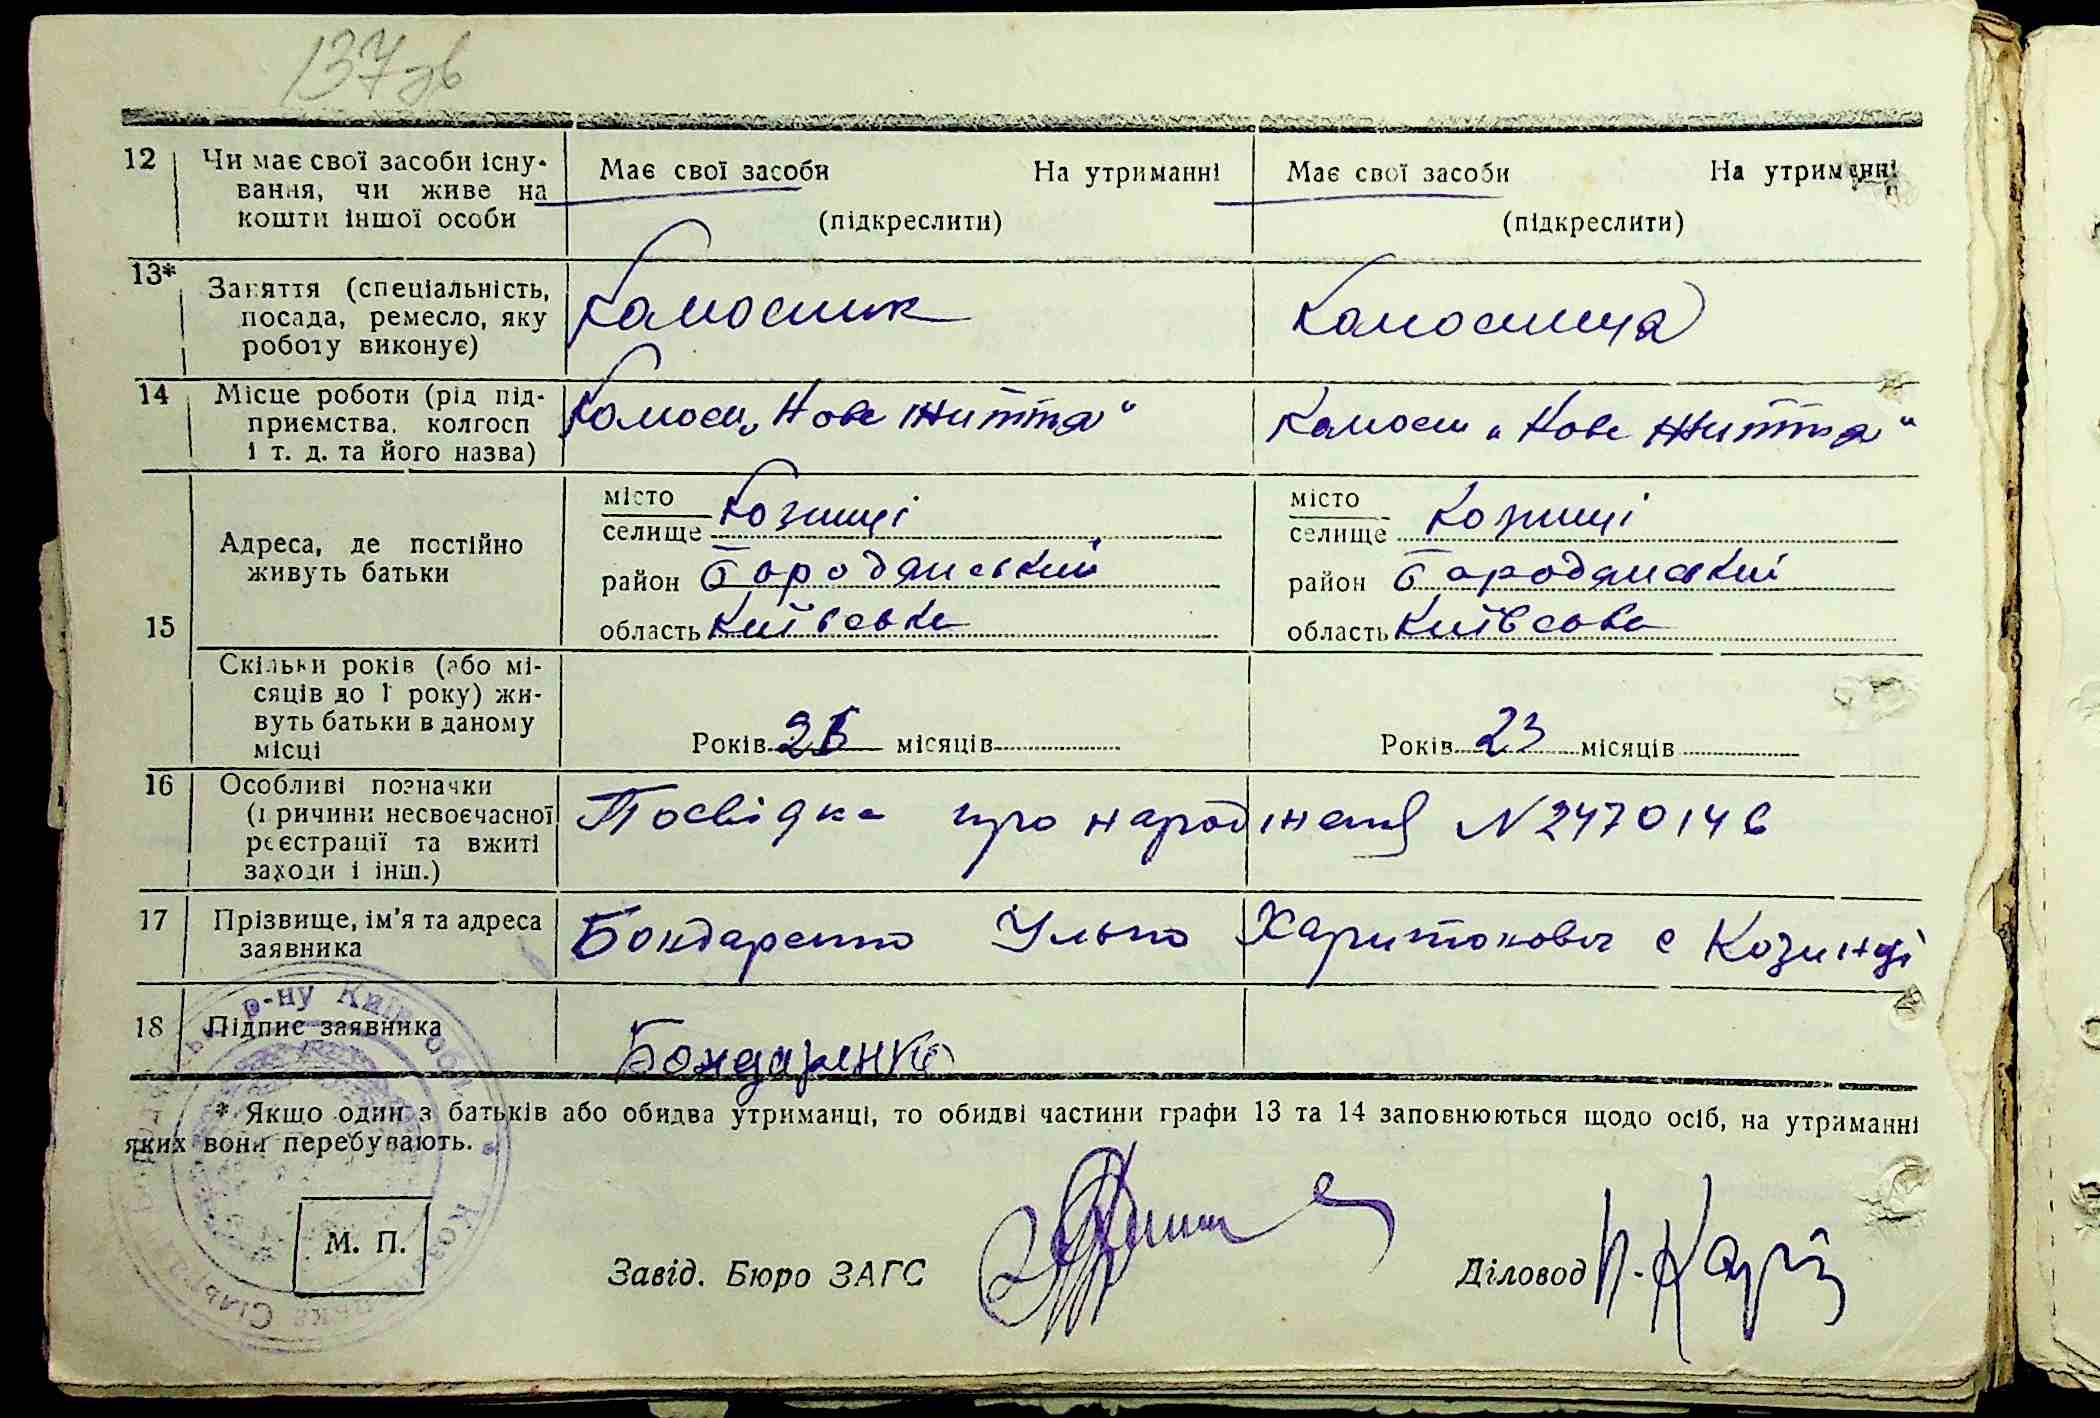 137 зв
12 Чи має свої засоби існу- Має свої засоби На утриманні Має свої засоби На утриманні
вання, чи живе на
кошти іншої особи (підкреслити) (підкреслити)
13* Заняття (спеціальність,
посада, ремесло, яку Колгосник Колгосниця
роботу виконує)
14 Місце роботи (рід під-
приємства, колгосп Колгосп „Нове Життя“ Колгосп „Нове Життя“
і т. д. та його назва)
місто місто
селище Козинці селище Козинці
Адреса, де постійно
живуть батьки район Бородянський район Бородянський
15 область Київська область Київська
Скільки років (або мі-
сяців до 1 року) жи-
вуть батьки в даному Років місяців Років 23 місяців
місці
16 Особливі позначки
(причини несвоєчасної Посвідка про народження N 2470146
реєстрації та вжиті
заходи і інш.)
17 Прізвище, ім'я та адреса Бондаренко Улько Харитонович с Козинці
заявника
р-ну Київ обл. * Козинецька Сільрада
18 Підпис заявника Бондаренко
* Якщо один з батьків або обидва утриманці, то обидві частини графи 13 та 14 заповнюються щодо осіб, на утриманні
яких вони перебувають.
М. П.
Завід. Бюро ЗАГС Діловод